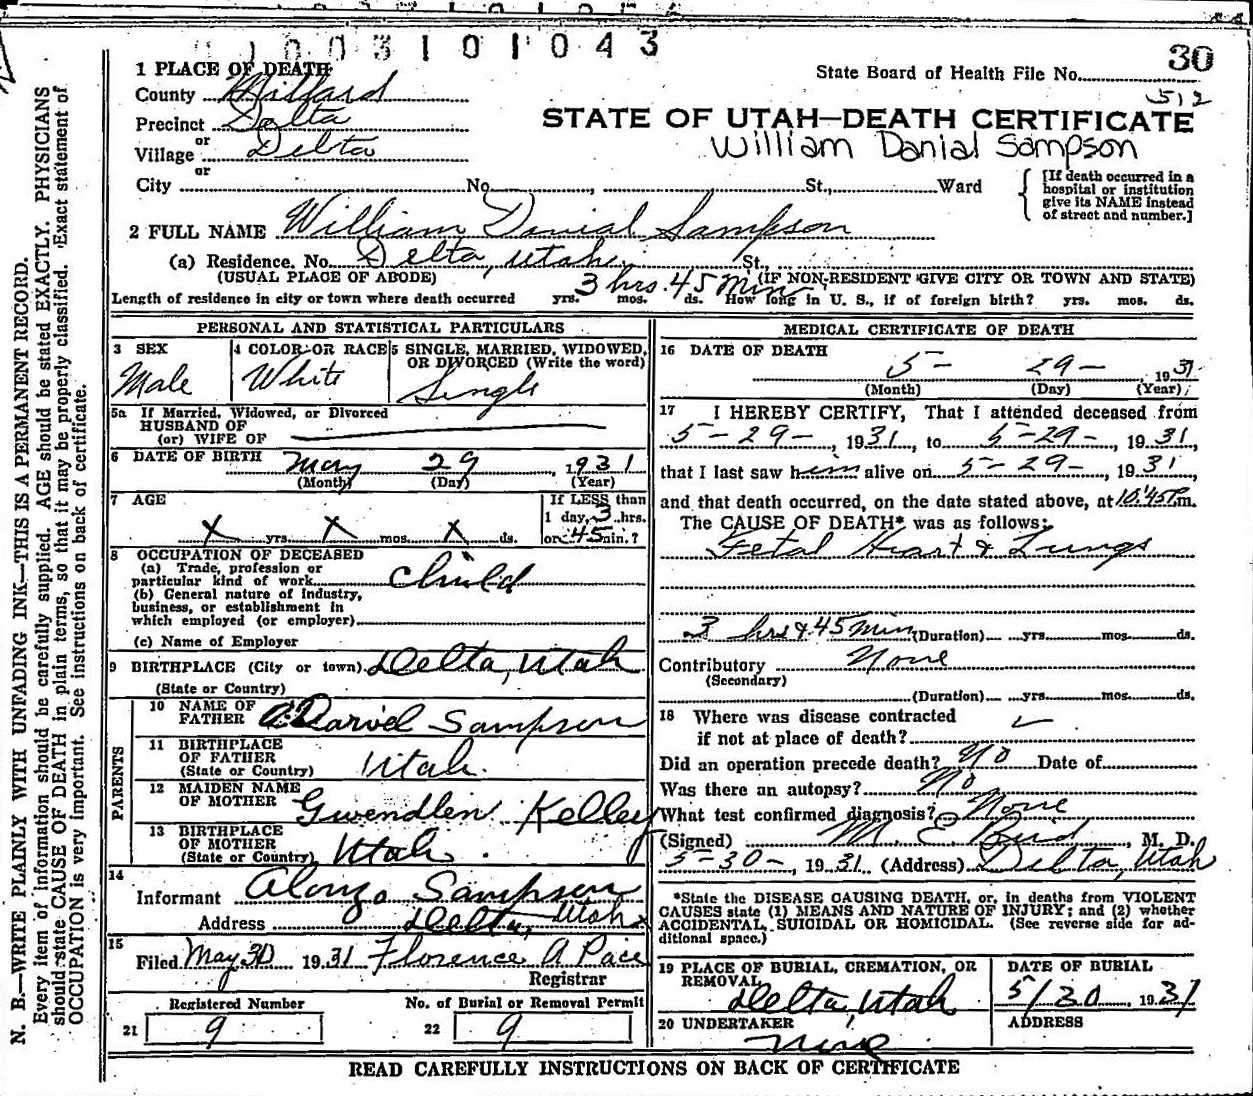 1003101043
30
State Board of Health File No.
512
1 PLACE OF DEATH
County Millard
Precinct Delta
or
Village Delta
or
City No. , St., Ward
STATE OF UTAH—DEATH CERTIFICATE
William Danial Sampson
[If death occurred in a hospital or institution give its NAME instead of street and number.]
2 FULL NAME William Danial Sampson
(a) Residence. No. Delta, Utah. St.,
(USUAL PLACE OF ABODE) (IF NON-RESIDENT GIVE CITY OR TOWN AND STATE)
3 hrs. 45 Min
Length of residence in city or town where death occurred yrs. mos. ds. How long in U. S., if of foreign birth? yrs. mos. ds.
PERSONAL AND STATISTICAL PARTICULARS
3 SEX
Male
4 COLOR OR RACE
White
5 SINGLE, MARRIED, WIDOWED,
OR DIVORCED (Write the word)
Single
5a If Married, Widowed, or Divorced
HUSBAND OF
(or) WIFE OF
6 DATE OF BIRTH May 29, 1931
(Month) (Day) (Year)
7 AGE
X yrs. X mos. X ds.
If LESS than
1 day, 3 hrs.
or 45 min.?
8 OCCUPATION OF DECEASED
(a) Trade, profession or
particular kind of work Child
(b) General nature of industry,
business, or establishment in
which employed (or employer)
(c) Name of Employer
9 BIRTHPLACE (City or town) Delta, Utah
(State or Country)
PARENTS
10 NAME OF
FATHER Darvel Sampson
11 BIRTHPLACE
OF FATHER
(State or Country) Utah.
12 MAIDEN NAME
OF MOTHER Gwendlen Kelley
13 BIRTHPLACE
OF MOTHER
(State or Country) Utah.
14
Informant Alonzo Sampson
Address Delta, Utah
15
Filed May 30 1931 Florence A Pace
Registrar
Registered Number
21 9
No. of Burial or Removal Permit
22 9
MEDICAL CERTIFICATE OF DEATH
16 DATE OF DEATH
5- 29- 1931
(Month) (Day) (Year)
17 I HEREBY CERTIFY, That I attended deceased from
5-29-, 1931, to 5-29-, 1931,
that I last saw him alive on 5-29-, 1931
and that death occurred, on the date stated above, at 10:45P m.
The CAUSE OF DEATH* was as follows:
Fetal Heart & Lungs
3 hrs & 45 Min (Duration) yrs. mos. ds.
Contributory None
(Secondary)
(Duration) yrs. mos. ds.
18 Where was disease contracted
if not at place of death?
Did an operation precede death? No Date of
Was there an autopsy? No
What test confirmed diagnosis? None
(Signed) M. E. Bird, M. D.
5-30-, 1931 (Address) Delta, Utah
*State the DISEASE CAUSING DEATH, or, in deaths from VIOLENT
CAUSES state (1) MEANS AND NATURE OF INJURY; and (2) whether
ACCIDENTAL, SUICIDAL OR HOMICIDAL. (See reverse side for ad-
ditional space.)
19 PLACE OF BURIAL, CREMATION, OR
REMOVAL
Delta, Utah
DATE OF BURIAL
5/30, 1931
20 UNDERTAKER
None
ADDRESS
READ CAREFULLY INSTRUCTIONS ON BACK OF CERTIFICATE
N. B.—WRITE PLAINLY WITH UNFADING INK—THIS IS A PERMANENT RECORD.
Every item of information should be carefully supplied. AGE should be stated EXACTLY. PHYSICIANS
should state CAUSE OF DEATH in plain terms, so that it may be properly classified. Exact statement of
OCCUPATION is very important. See instructions on back of certificate.